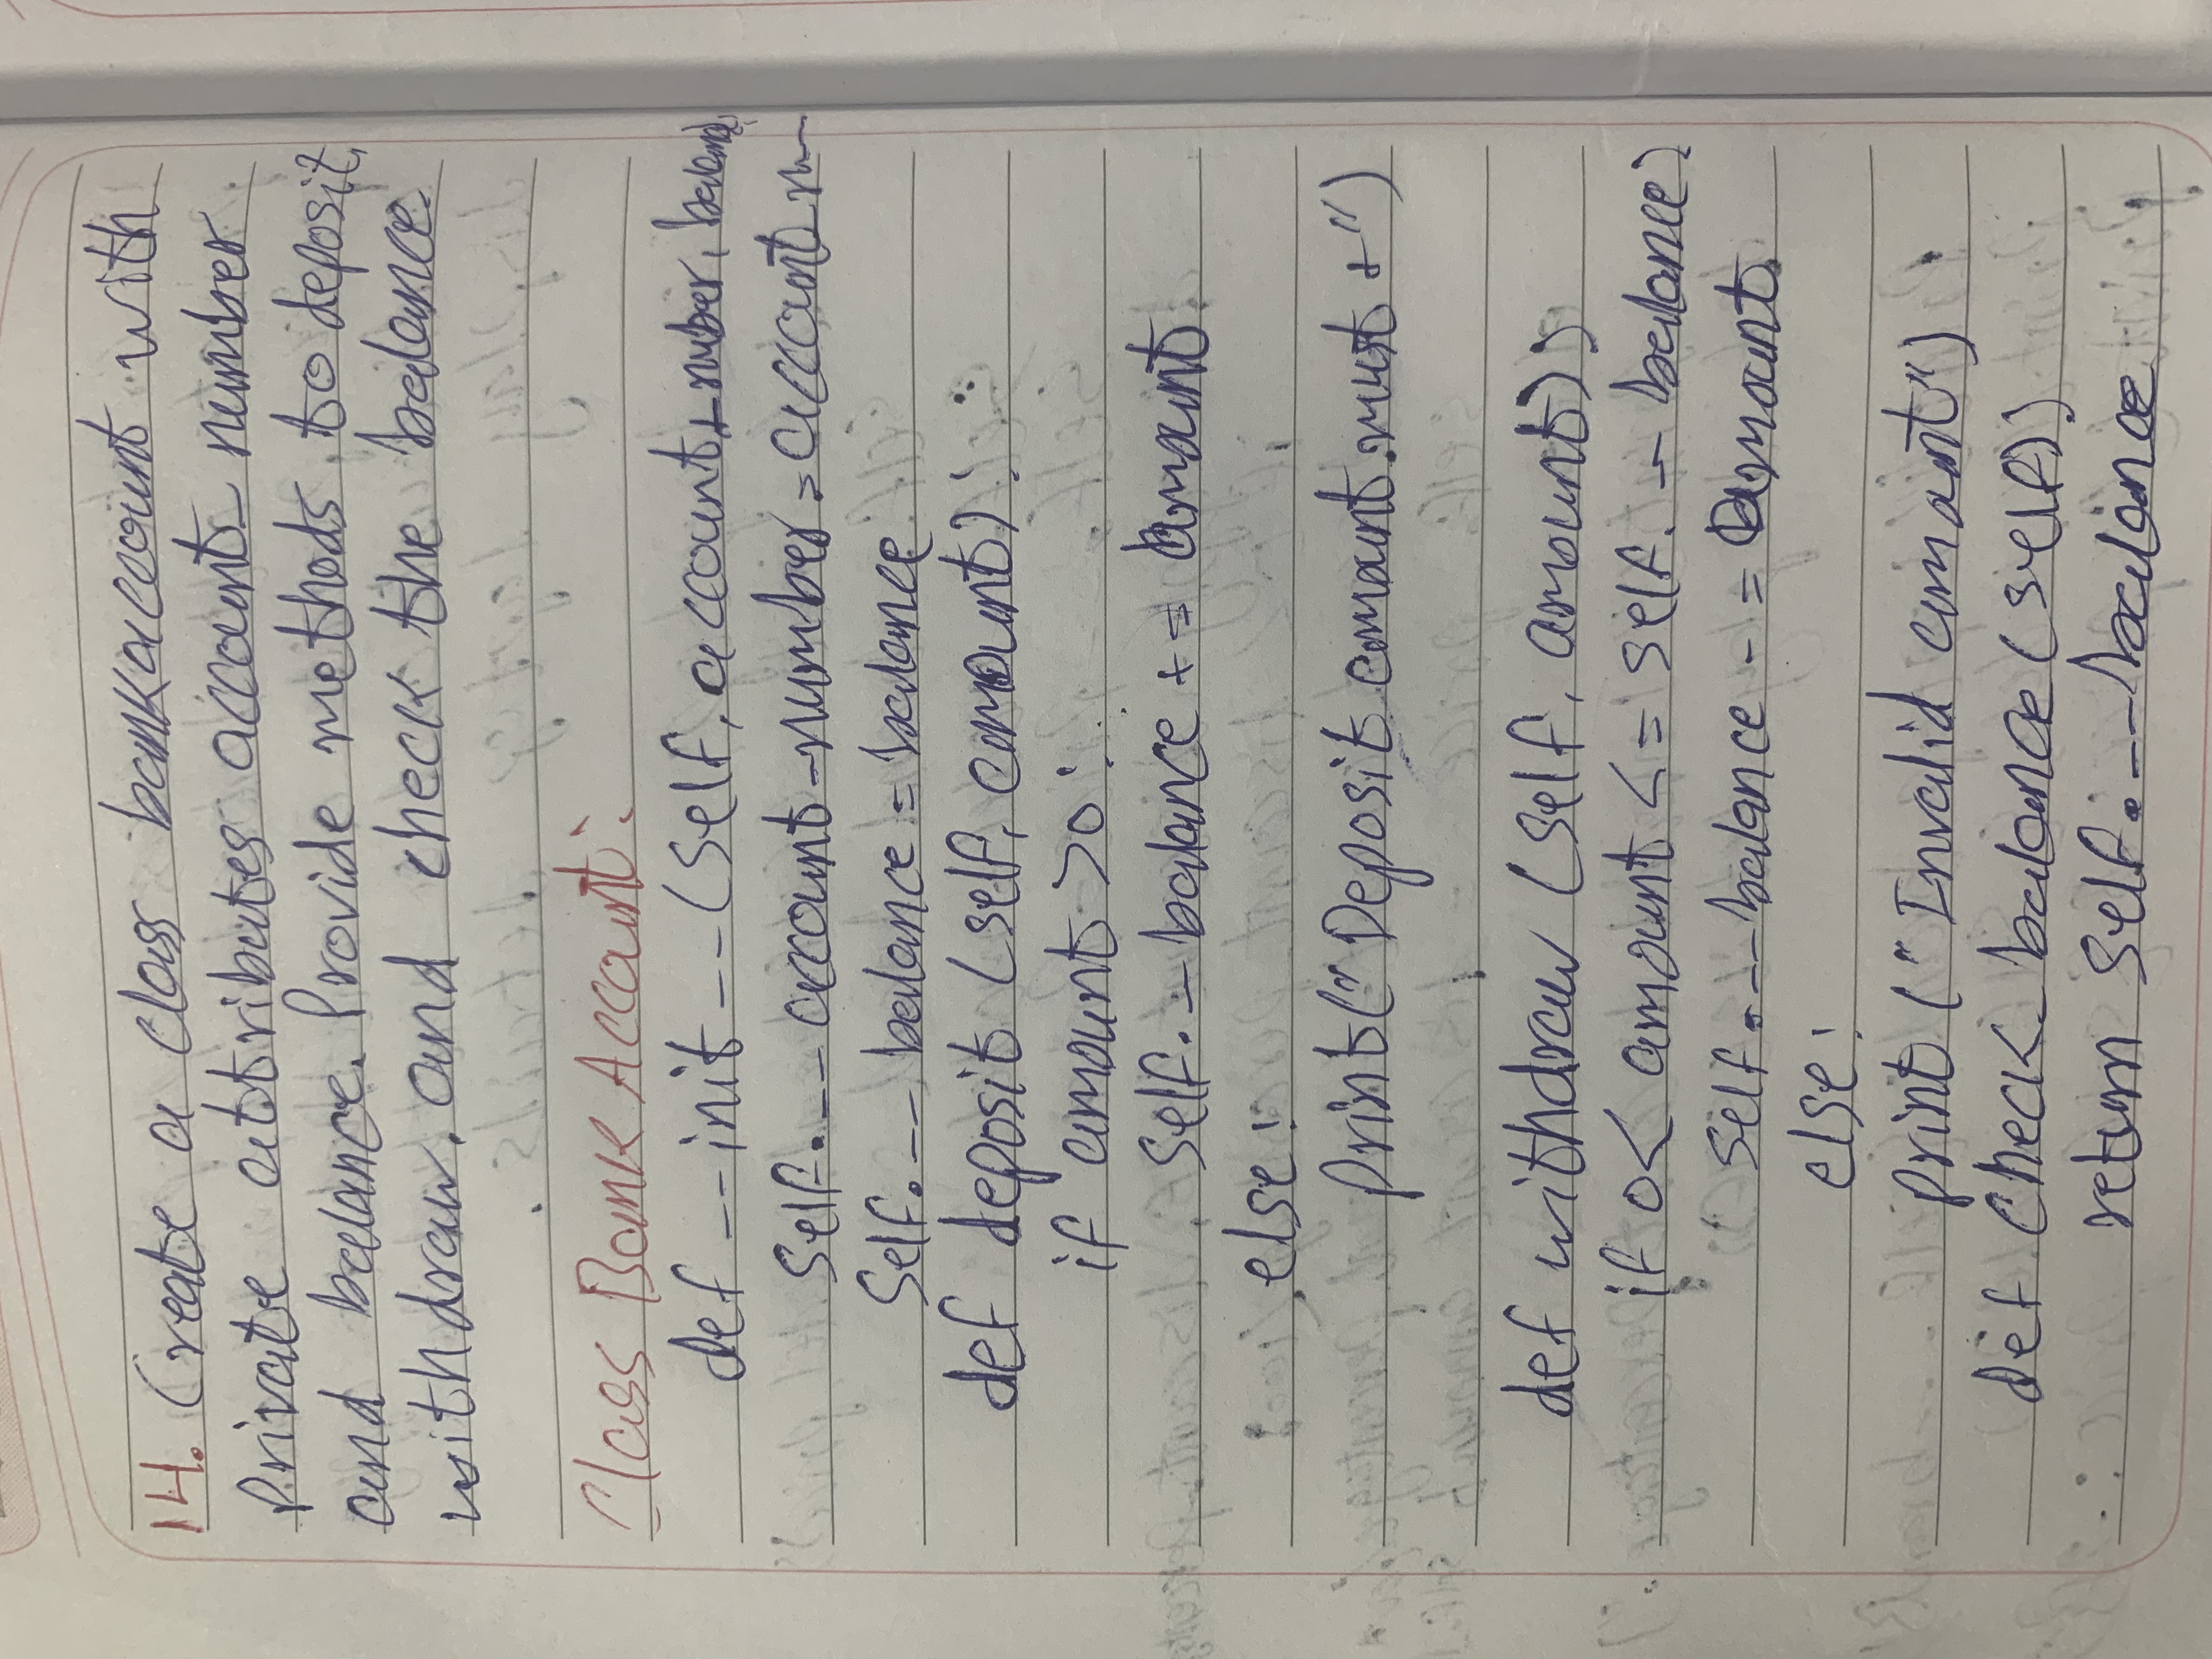 14. Create a class bankaccount with
private attributes account_number
and balance. Provide methods to deposit,
withdraw, and check the balance.
Class BankAccount:
def __init__(self, account_number, balance):
self.__account_number = account_n
self.__balance = balance
def deposit (self, amount):
if amount >0:
self._balance += amount
else:
print("Deposit amount must +")
def withdraw (self, amount):
if 0< amount <= self.__balance:
self.__balance -= amount
else:
print ("Invalid amount")
def check_balance(self):
return self.__balance